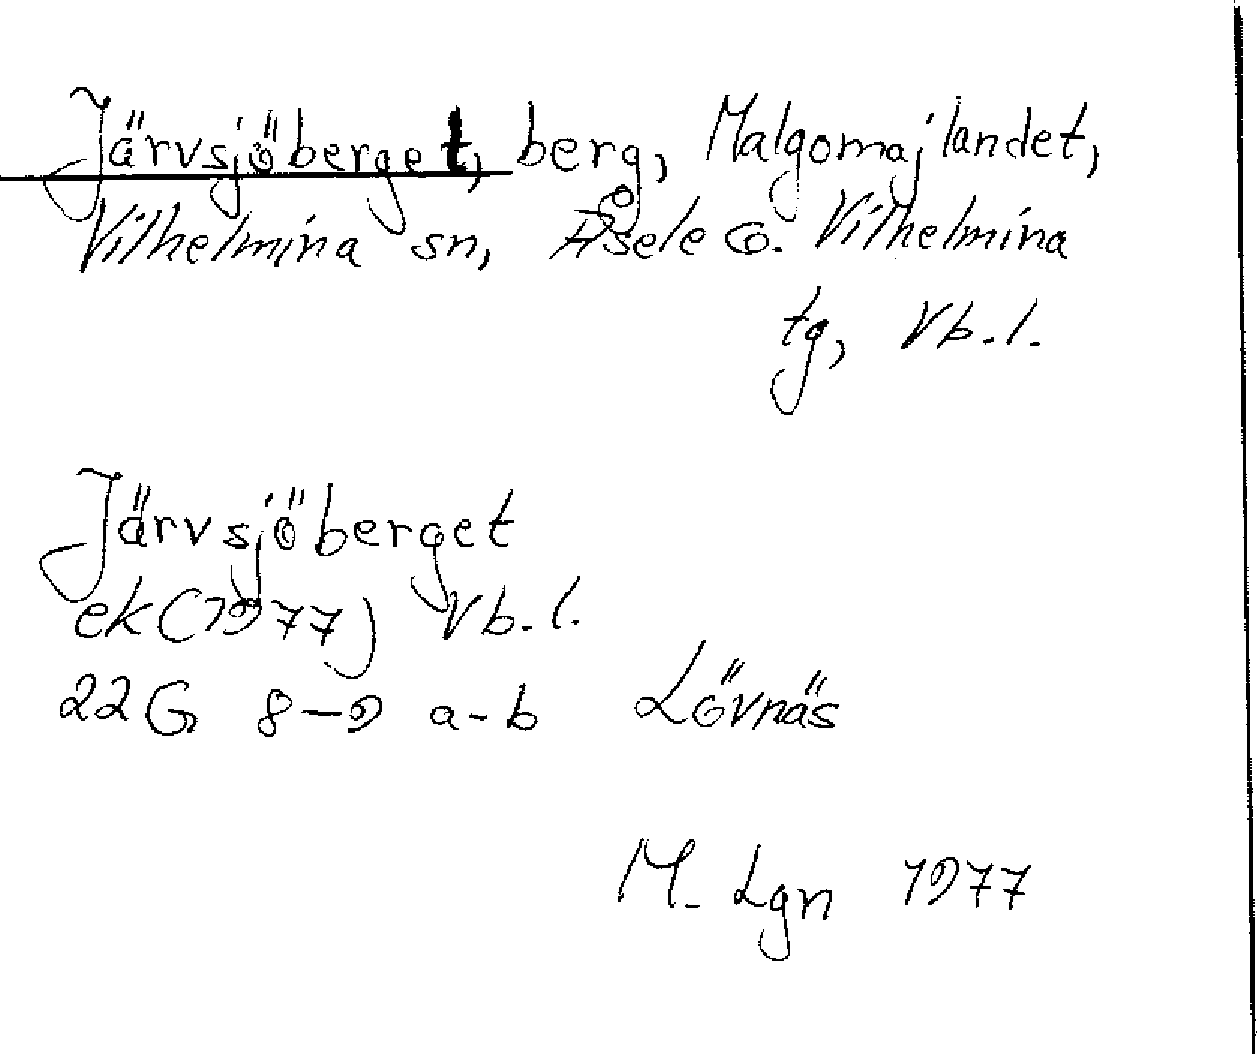 Järvsjöberget, berg, Malgomajlandet,
Vilhelmina sn, Åsele o. Vilhelmina
tg, Vb.l.
Järvsjöberget
ek(1977) Vb.l.
22G 8-9 a-b Lövnäs
M. Lgn 1977